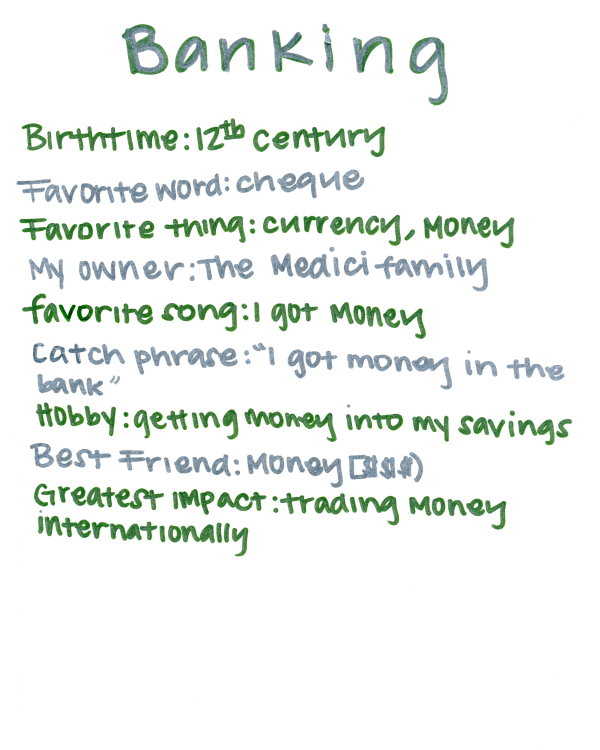 Banking
Birthtime: 12th century
Favorite word: cheque
Favorite thing: currency, Money
My owner: The Medici family
favorite song: I got Money
Catch phrase: "I got money in the
bank"
Hobby: getting money into my savings
Best Friend: Money ($$$)
Greatest impact: trading Money
internationally